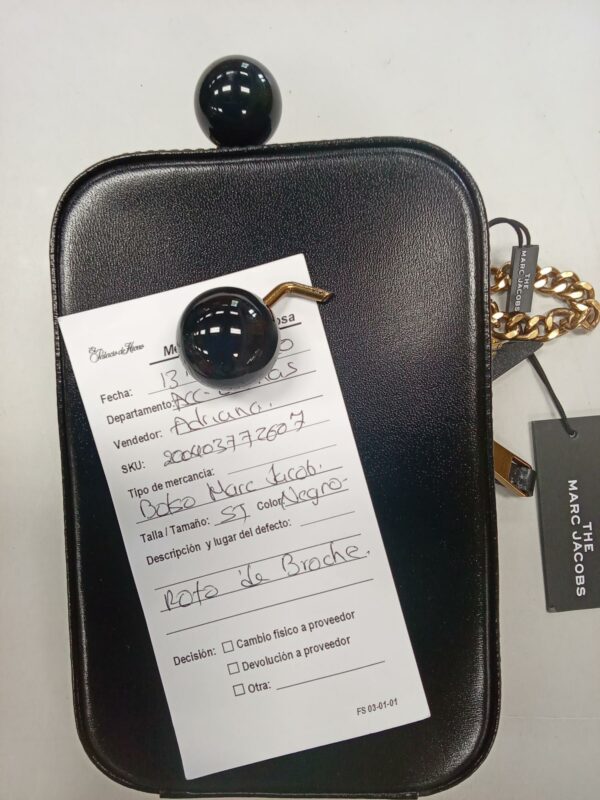 El Palacio de Hierro
osa
Fecha: 13
Departamento: Acc-
Vendedor: Adriana.
SKU: 200403772607
Tipo de mercancia:
Bolso Marc Jacob.
Talla / Tamaño: ST Color Negro-
Descripción y lugar del defecto:
Roto de Broche.
Decisión: Cambio fisico a proveedor
Devolución a proveedor
Otra:
FS 03-01-01
THE
MARC JACOBS
THE
MARC JACOBS